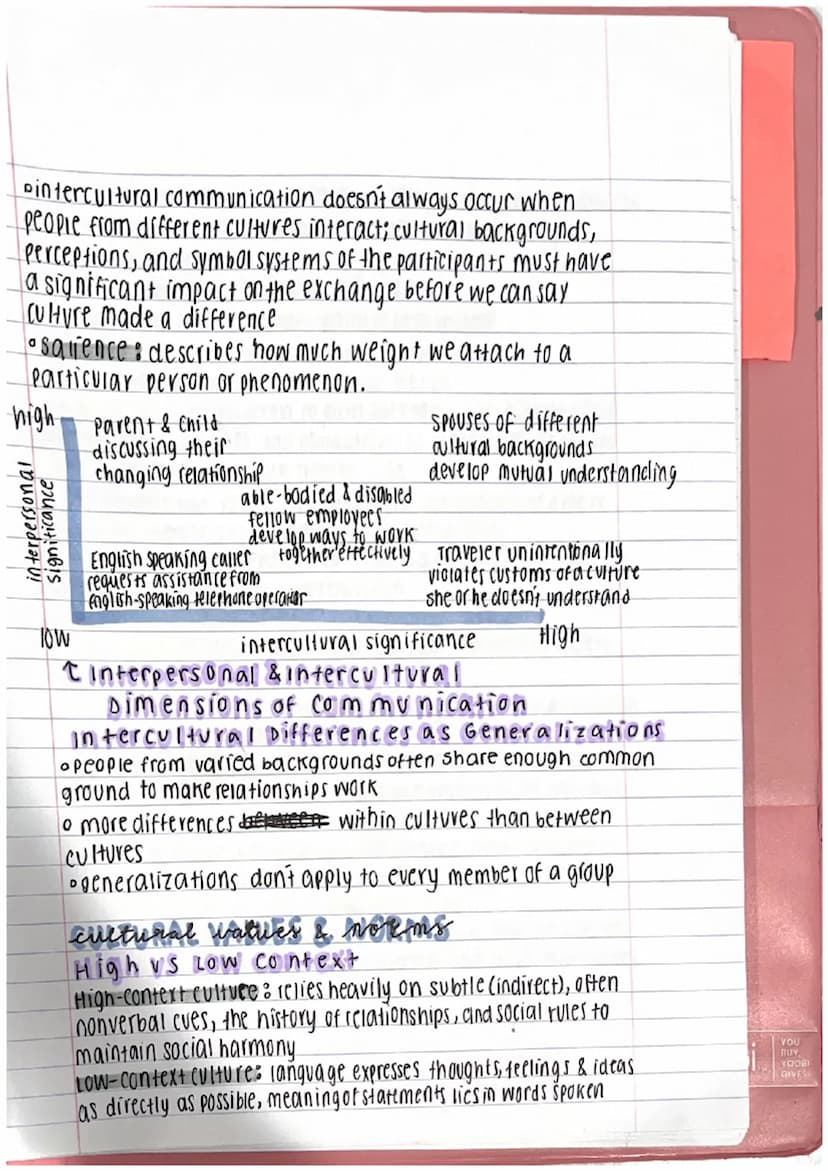 ◦intercultural communication doesn't always occur when
people from different cultures interact; cultural backgrounds,
perceptions, and symbol systems of the participants must have
a significant impact on the exchange before we can say
culture made a difference
◦salience: describes how much weight we attach to a
particular person or phenomenon.
high
interpersonal
significance
Parent & Child
discussing their
changing relationship
spouses of different
cultural backgrounds
develop mutual understanding
able-bodied & disabled
fellow employees
develop ways to work
together effectively
English speaking caller
requests assistance from
english-speaking telephone operator
Traveler unintentionally
violates customs of a culture
she or he doesn't understand
low
intercultural significance
High
↑ Interpersonal & intercultural
Dimensions of Communication
Intercultural Differences as Generalizations
◦people from varied backgrounds often share enough common
ground to make relationships work
◦ more differences between within cultures than between
cultures
◦generalizations don't apply to every member of a group
cultural values & NORMS
High vs Low Context
High-context culture: relies heavily on subtle (indirect), often
nonverbal cues, the history of relationships, and social rules to
maintain social harmony
Low-context culture: language expresses thoughts, feelings & ideas
as directly as possible, meaning of statements lies in words spoken
i.
YOU
BUY,
YOOBI
GIVES